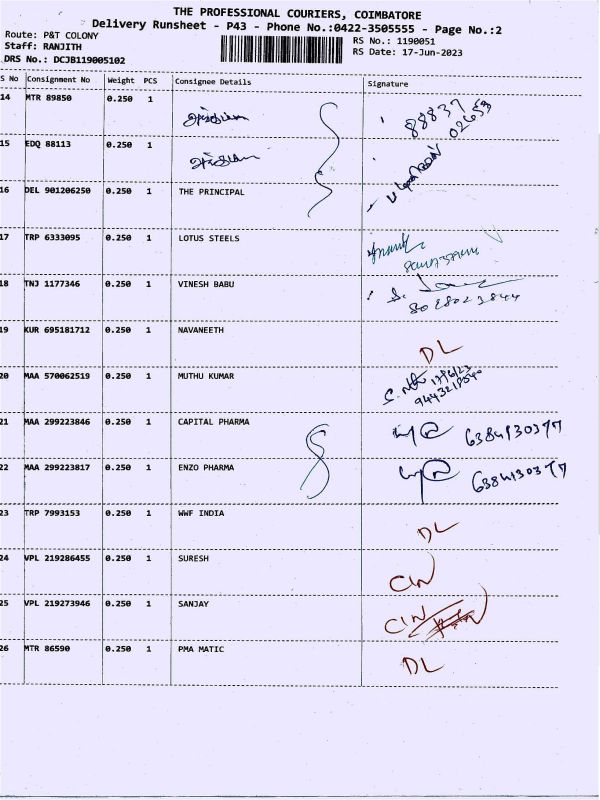 THE PROFESSIONAL COURIERS, COIMBATORE
Delivery Runsheet - P43 - Phone No.:0422-3505555 - Page No.:2
Route: P&T COLONY
Staff: RANJITH
RS No.: 1190051
DRS No.: DCJB119005102
RS Date: 17-Jun-2023
S No Consignment No Weight PCS Consignee Details Signature
14 MTR 89850 0.250 1 88837
02653
15 EDQ 88113 0.250 1
16 DEL 901206250 0.250 1 THE PRINCIPAL
17 TRP 6333095 0.250 1 LOTUS STEELS
18 TNJ 1177346 0.250 1 VINESH BABU S.
8028023844
19 KUR 695181712 0.250 1 NAVANEETH DL
20 MAA 570062519 0.250 1 MUTHU KUMAR 17/6/23
21 MAA 299223846 0.250 1 CAPITAL PHARMA 6384130377
22 MAA 299223817 0.250 1 ENZO PHARMA 6384130377
23 TRP 7993153 0.250 1 WWF INDIA DL
24 VPL 219286455 0.250 1 SURESH CIN
25 VPL 219273946 0.250 1 SANJAY CIN
26 MTR 86590 0.250 1 PMA MATIC DL